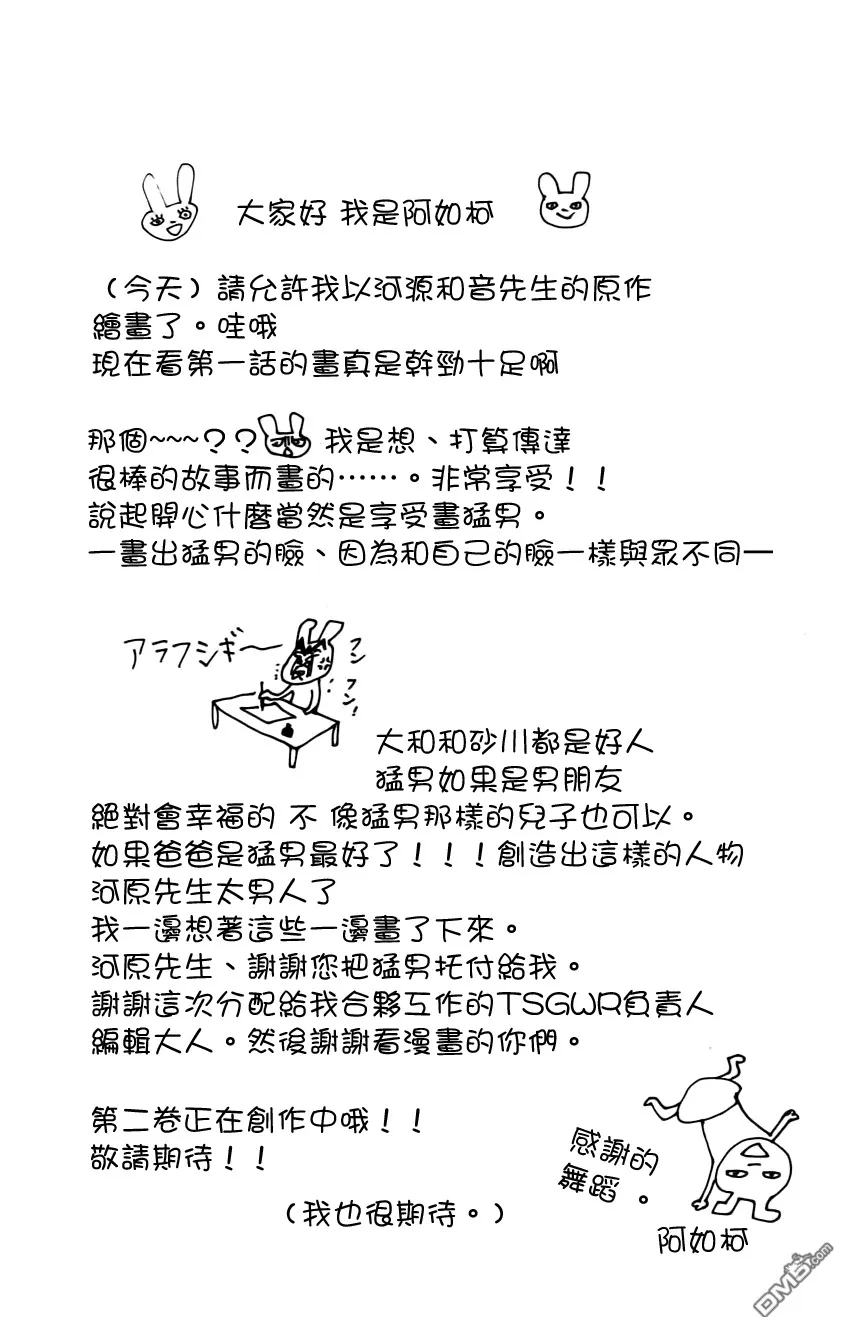 大家好 我是阿如柯
（今天）請允許我以河源和音先生的原作
繪畫了。哇哦
現在看第一話的畫真是幹勁十足啊
那個~~~？？ 我是想、打算傳達
很棒的故事而畫的……。非常享受！！
說起開心什麼當然是享受畫猛男。
一畫出猛男的臉、因為和自己的臉一樣與眾不同一
アラフシギ〜
フン
フン!
大和和砂川都是好人
猛男如果是男朋友
絕對會幸福的 不 像猛男那樣的兒子也可以。
如果爸爸是猛男最好了！！！創造出這樣的人物
河原先生太男人了
我一邊想著這些一邊畫了下來。
河原先生、謝謝您把猛男托付給我。
謝謝這次分配給我合夥互作的TSGWR負責人
編輯大人。然後謝謝看漫畫的你們。
第二卷正在創作中哦！！
敬請期待！！
（我也很期待。）
感謝的
舞蹈 。
阿如柯
DM5.com